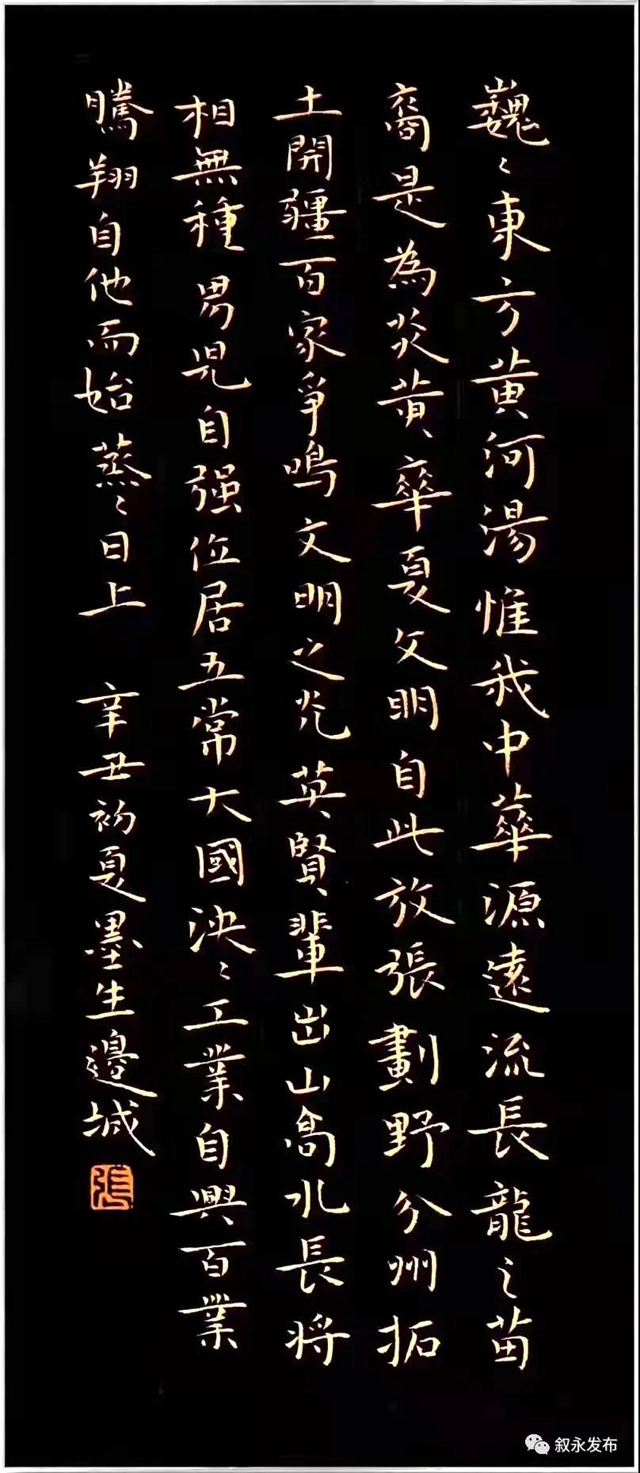 巍〻東方黄河湯惟我中華源遠流長龍之苗
裔是為炎黄華夏文明自此放張劃野分州拓
土開疆百家爭鳴文明之光英賢輩出山高水長将
相無種男児自强位居五常大國泱〻工業自興百業
騰翔自他而始蒸〻日上 辛丑初夏墨生邊城
張
叙永发布